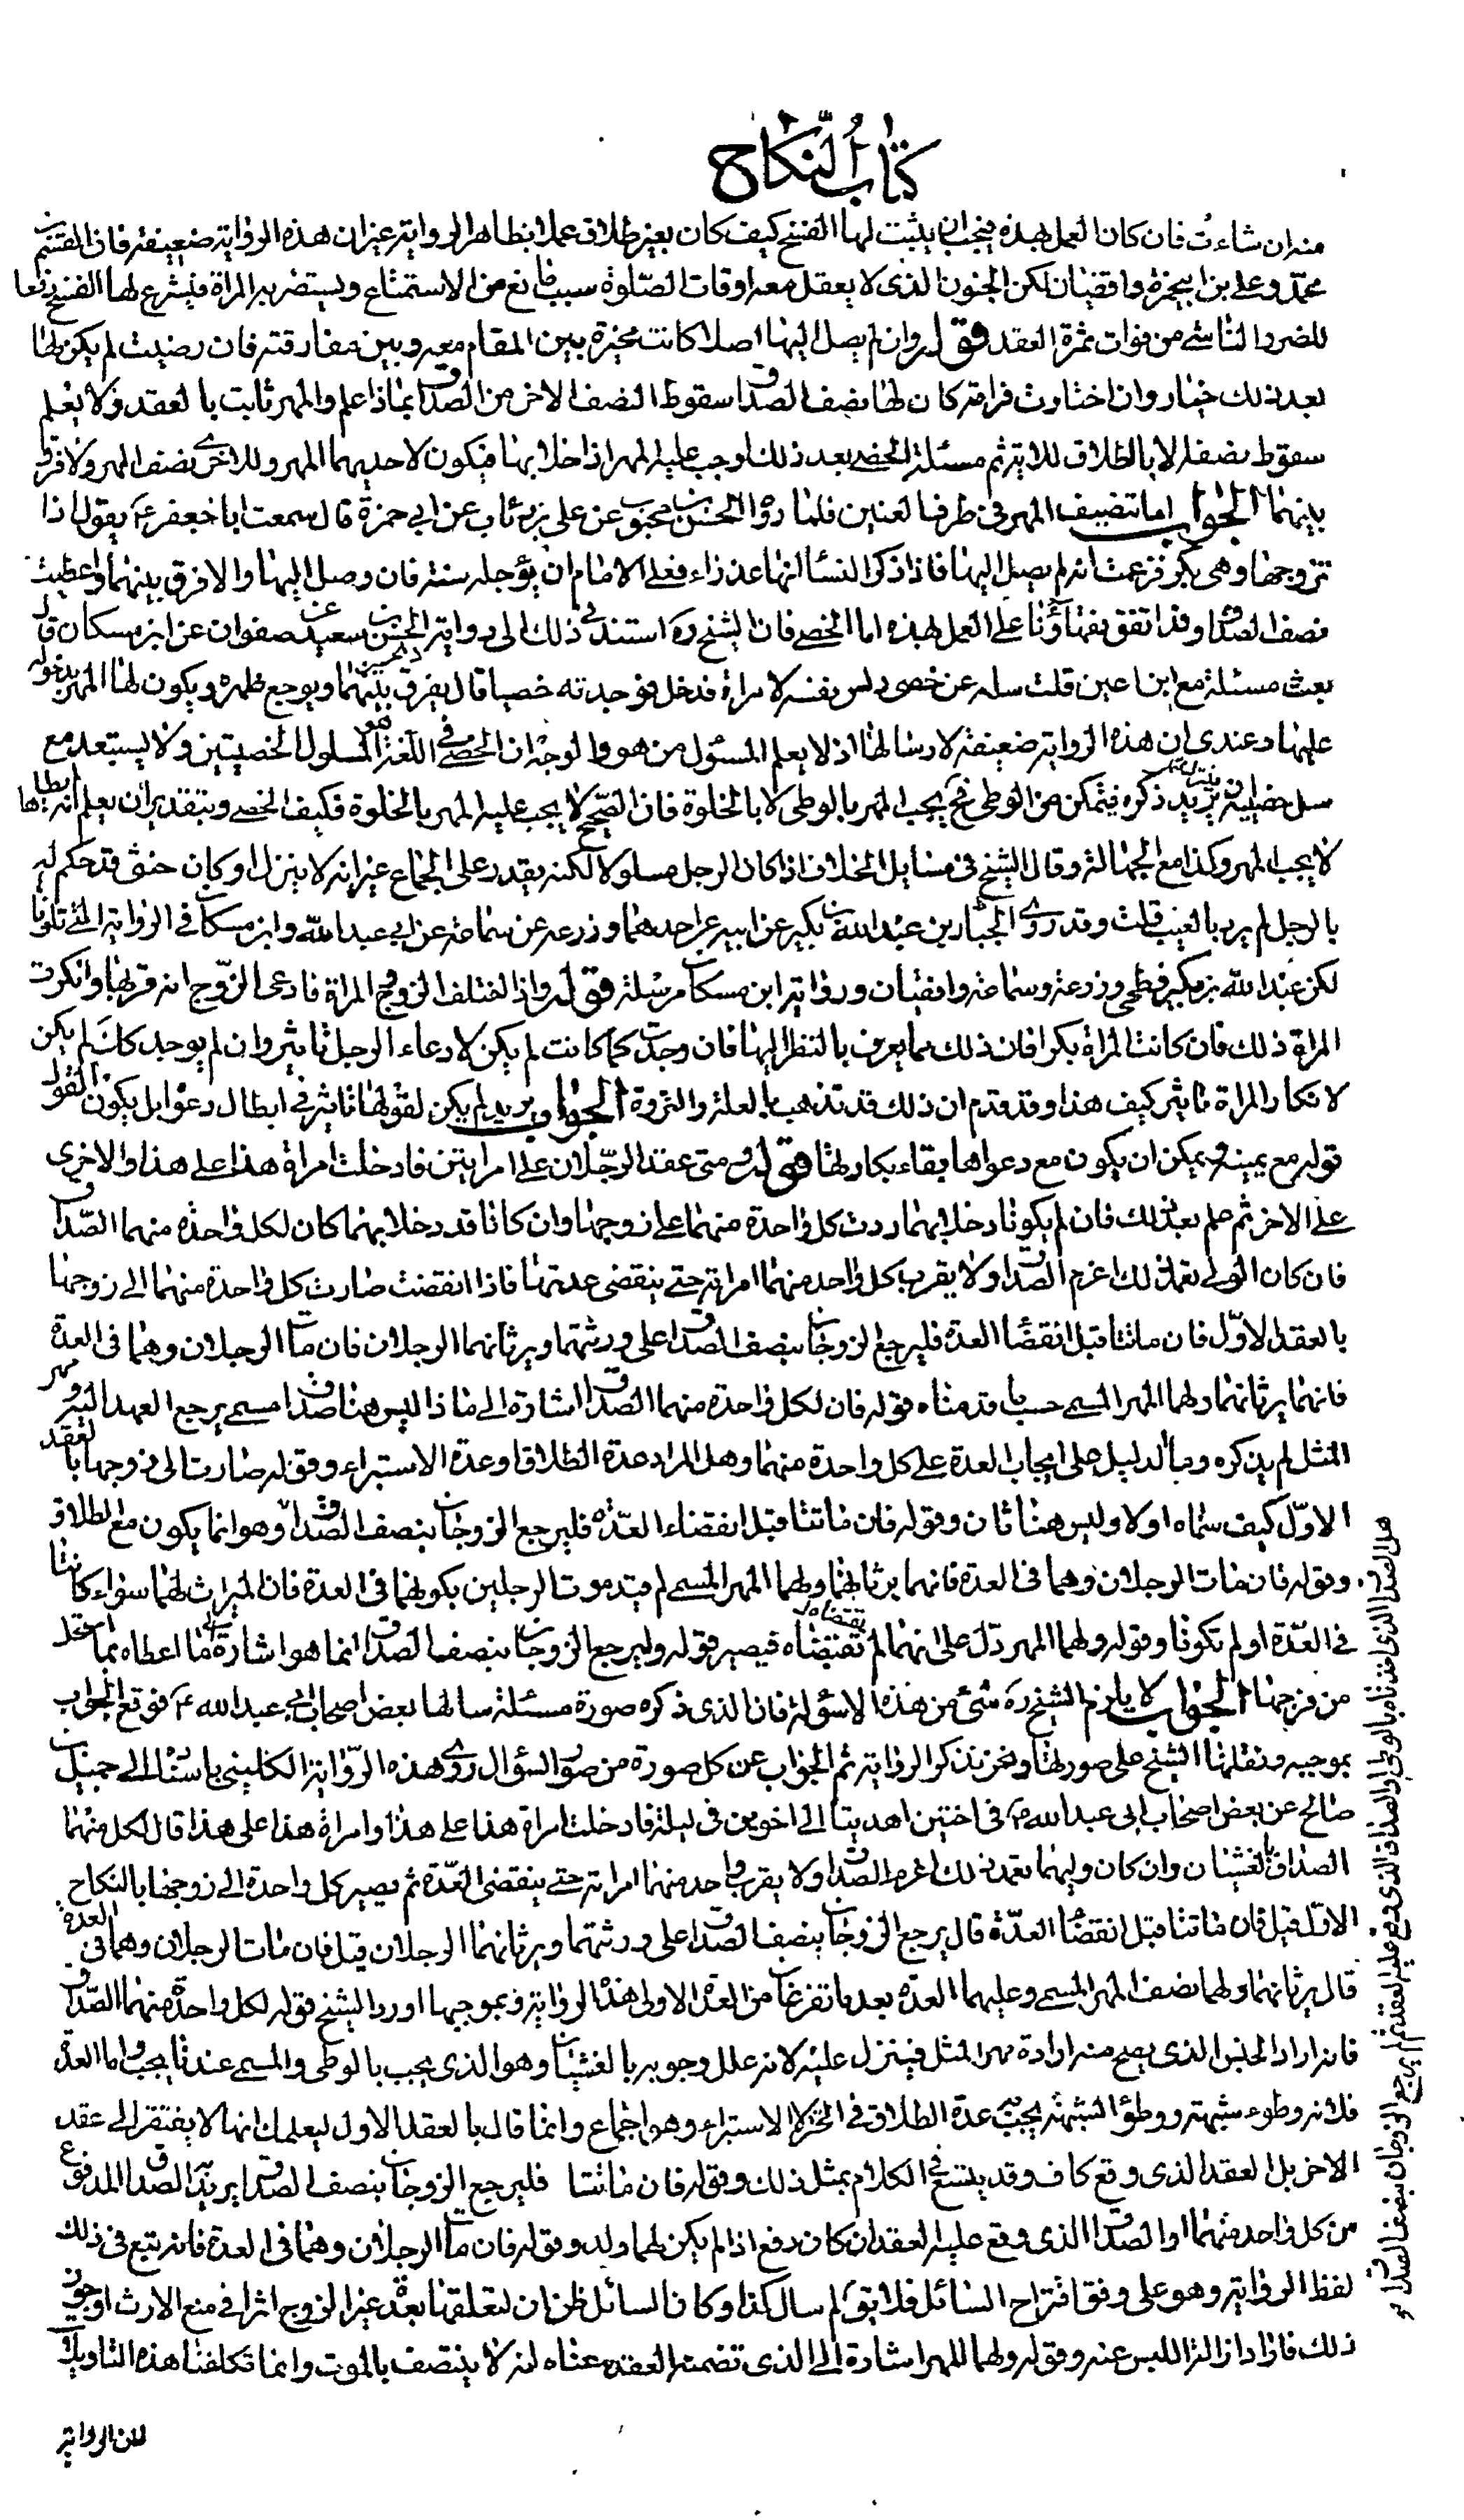 كتاب النكاح
منه ان شاءت فان كان العمل بهذه فيجب ان يثبت لها الفسخ كيف كان بغير طلاق عملا بظاهر الرواية غير ان هذه الرواية ضعيفة فان القسم بن
محمد وعلي بن ابي حمزة واقفيان لكن الجنون الذى لا يعقل معه اوقات الصلوة سبب مانع من الاستمتاع ويستضر به المراة فيشرع لها الفسخ دفعا
للضرر الناشي من فوات ثمرة العقد قوله وان لم يصل اليها اصلا كانت مخيرة بين المقام معه وبين مفارقته فان رضيت لم يكن لها
بعد ذلك خيار وان اختارت فراقه كان لها نصف الصداق سقوط النصف الاخر من الصداق بماذا علم والمهر ثابت بالعقد ولا يعلم
سقوط نصفه الا بالطلاق للاية ثم مسئلة الخصي بعد ذلك اوجب عليه المهر اذا خلا بها فيكون لاحديهما المهر وللاخرى نصف المهر ولا فرق
بينهما الجواب اما تنصيف المهر في طرف العنين فلما رواه الحسن بن محبوب عن على بن رئاب عن ابي حمزة قال سمعت ابا جعفر ع يقول اذا
تزوجها وهى بكر فزعمت انه لم يصل اليها فاذا ذكر النساء انها عذراء فعلى الامام ان يؤجله سنة فان وصل اليها والا فرق بينهما واعطيت
نصف الصداق وقد اتفق فقهاؤنا على العمل بهذه اما الخصي فان الشيخ ره استند في ذلك الى رواية الحسين بن سعيد عن صفوان عن ابن مسكان قال
بعث مسئلة مع ابن اعين قلت سله عن خصى دلس نفسه لامراة فدخل بها فوجدته خصيا قال يفرق بينهما ويوجع ظهره ويكون لها المهر بدخوله
عليها وعندى ان هذه الرواية ضعيفة لارسالها اذ لا يعلم المسئول من هو والوجه ان الخصي في اللغة هو المسلول الخصيتين ولا يستبعد مع
سل خصيتيه ذكره فيتمكن من الوطى فح يجب المهر بالوطى لا بالخلوة فان الصحيح لا يجب عليه المهر بالخلوة فكيف الخصي وبتقدير ان يعلم انه لم يطاها
لا يجب المهر وكذا مع الجهالة وقال الشيخ في مسايل الخلاف اذا كان الرجل مسلولا لكنه يقدر على الجماع غير انه لا ينزل او كان خنثى قد حكم له
بالرجل لم يرد بالعيب قلت وقد روى الجبار بن عبد الله بن بكير عن ابيه عن احدهما وزرعه عن سماعة عن ابي عبد الله وابن مسكان في الرواية التي تلوناها
لكن عبد الله بن بكير فطحى وزرعة وسماعة واقفيان ورواية ابن مسكان مرسلة قوله واذا اختلف الزوج المراة فادعى الزوج انه قربها وانكرت
المراة ذلك فان كانت المراة بكرا فان ذلك مما يعرف بالنظر اليها فان وجدت كما كانت لم يكن لادعاء الرجل تاثير وان لم يوجد كك لم يكن
لانكار المراة تاثير كيف هذا وقد قدم ان ذلك قد تذهب بالعلة والنزوة الجواب يريد لم يكن لقولها تاثير في ابطال دعواه بل يكون القول
قوله مع يمينه ويمكن ان يكون مع دعواها بقاء بكارتها قوله ومتى عقد الرجلان على امراتين فادخلت امراة هذا على هذا والاخرى
على الاخر ثم علم بعد ذلك فان لم يكونا دخلا بهما ردت كل واحدة منهما على زوجها وان كانا قد دخلا بهما كان لكل واحدة منهما الصداق
فان كان الولي تعمد ذلك اغرم الصداق ولا يقرب كل واحد منهما امراته حتى ينقضى عدتها فاذا انقضت صارت كل واحدة منهما الى زوجها
بالعقد الاول فان ماتتا قبل انقضاء العدة فليرجع الزوجان بنصف الصداق على ورثتهما ويرثانهما الرجلان فان مات الرجلان وهما في العدة
فانهما يرثانهما ولهما المهر المسمى حسب ما قدمناه قوله فان لكل واحدة منهما الصداق اشارة الى ماذا اليس هنا صداق مسمى يرجع العهد اليه ومهر
المثل لم يذكره وما الدليل على ايجاب العدة على كل واحدة منهما وهل المراد عدة الطلاق او عدة الاستبراء وقوله صارت الى زوجها بالعقد
الاول كيف سماه اولا وليس هنا ثان وقوله فان ماتتا قبل انقضاء العدة فليرجع الزوجان بنصف الصداق وهو انما يكون مع الطلاق
وقوله فان مات الرجلان وهما في العدة فانهما يرثانهما ولهما المهر المسمى لم قيد موت الرجلين بكونهما في العدة فان الميراث لهما سواء كانتا
في العدة او لم تكونا وقوله ولهما المهر دل على انهما لم تقتضاه فيصير قوله وليرجع الزوجان بنصف الصداق انما هو اشارة الى ما اعطاه بما
من فرجها الجواب لا يلزم الشيخ ره شئ من هذه الاسؤلة فان الذى ذكره صورة مسئلة سالها بعض اصحاب ابي عبد الله ع فوقع الجواب
بموجبه ونقلها الشيخ على صورتها ونحن نذكر الرواية ثم الجواب عن كل صورة من صور السؤال روى هذه الرواية الكليني باسناده الى جميل بن
صالح عن بعض اصحاب ابى عبد الله ع في اختين اهديتا الى اخوين في ليلة فادخلت امراة هذا على هذا وامراة هذا على هذا قال لكل منهما
الصداق بالغشيان وان كان وليهما تعمد ذلك اغرم الصداق ولا يقرب واحد منهما امراته حتى ينقضى العدة ثم يصير كل واحدة الى زوجها بالنكاح
الاول قيل فان ماتتا قبل انقضاء العدة قال يرجع الزوجان بنصف الصداق على ورثتهما ويرثانهما الرجلان قيل فان مات الرجلان وهما في العدة
قال يرثانهما ولهما نصف المهر المسمى وعليهما العدة بعد ما تفرغان من العدة الاولى هذه الرواية وبموجبها اورد الشيخ فقوله لكل واحدة منهما الصداق
فانه اراد الجنس الذى يصح منه ارادة مهر المثل فينزل عليه لانه علل وجوبه بالغشيان وهو الذى يجب بالوطى والمسمى عندنا يجب واما العدة
فلانه وطوء شبهة ووطؤ الشبهة يجب به عدة الطلاق في الحرة لا الاستبراء وهو اجماع وانما قال بالعقد الاول ليعلمك انها لا يفتقر الى عقد
الاخر بل العقد الذى وقع كاف وقد يتسع في الكلام بمثل ذلك وقوله فان ماتتا فليرجع الزوجان بنصف الصداق يريد به الصداق المدفوع
من كل واحد منهما او الصداق الذى وقع عليه العقد ان كان دفع اذا لم يكن لهما ولد وقوله فان مات الرجلان وهما في العدة فانه تبع في ذلك
لفظ الرواية وهو على وفق اقتراح السائل فلا يق لم سال كذا وكان السائل ظن ان لتعلقها بعدة غير الزوج اثرا في منع الارث او جوز
ذلك فاراد ازالة اللبس عنه وقوله ولهما المهر اشارة الى الذى تضمنه العقد معناه انه لا ينتصف بالموت وانما تكلفنا هذه التاويلات
لان الرواية
هل الصداق الذى اخذتاه بالوطى او الصداق الذى وقع عليه العقد ثم يرجع الزوجان بنصف الصداق